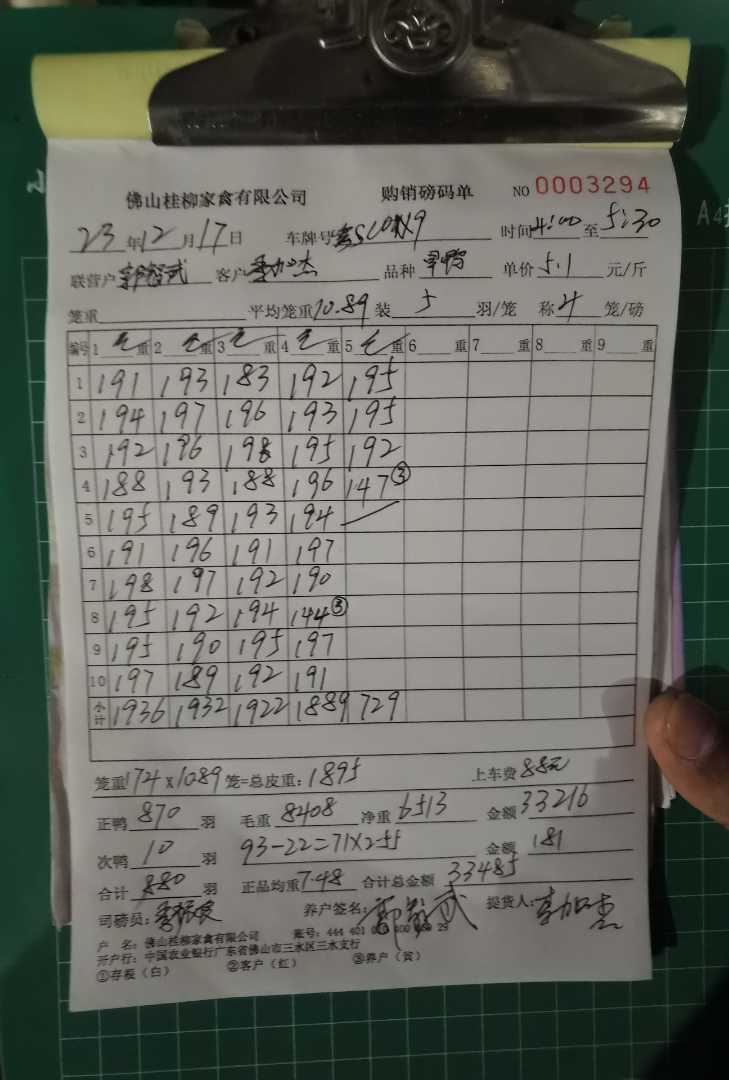 佛山桂柳家禽有限公司 购销磅码单 NO 0003294
23年12月17日 车牌号 时间4:00至5:30
联营户 客户 品种 单价5.1元/斤
笼重 平均笼重10.89 装5羽/笼 称4笼/磅
编号 1 毛重 2 毛重 3 毛重 4 毛重 5 毛重 6 重 7 重 8 重 9 重
1 191 193 183 192 195
2 194 197 196 193 195
3 192 196 198 195 192
4 188 193 188 196 147③
5 195 189 193 194
6 191 196 191 197
7 198 197 192 190
8 195 192 194 144③
9 195 190 195 197
10 197 189 192 191
小计 1936 1932 1922 1889 729
笼重174×1089笼=总皮重:1895 上车费88元
正鸭870羽 毛重8408 净重6513 金额33216
次鸭10羽 93-22=71×255 金额181
合计880羽 正品均重7.48 合计总金额33485
司磅员: 养户签名: 提货人:
户 名:佛山桂柳家禽有限公司 账号:444 401
开户行:中国农业银行广东省佛山市三水区三水支行
①存根(白) ②客户(红) ③养户(黄)
A4